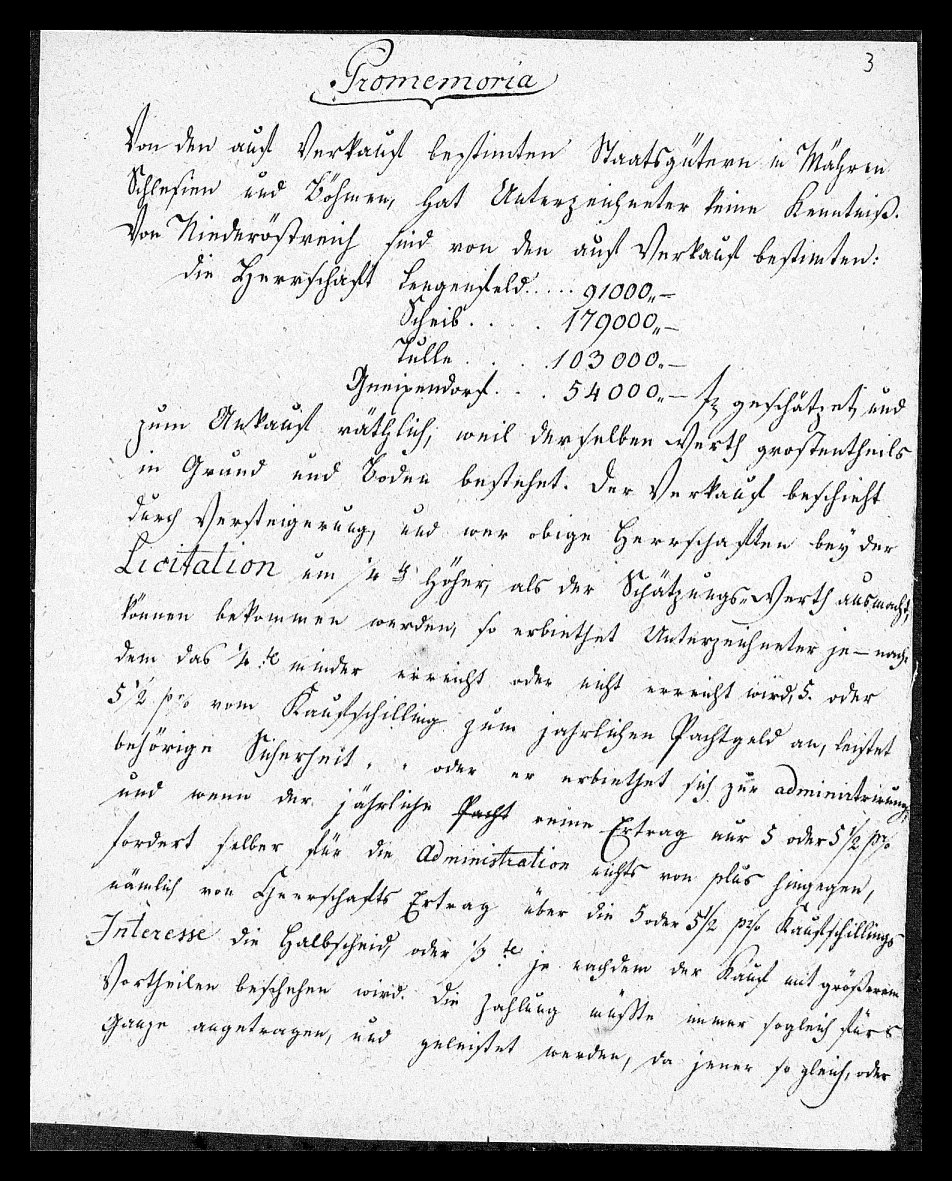 3
Promemoria
Von den auf Verkauf bestimten Staatsgütern in Mähren
Schlesien und Böhmen, hat Unterzeichneter keine Kenntniß.
Von Niederöstreich sind von den auf Verkauf bestimten:
die Herrschaft Lengenfeld..... 91000,,—
Scheib..... 179000,,—
Tulle.... 103000.—
Gneixendorf... 54000,,— f geschätzet, und
zum Ankauf räthlich, weil derselben Werth grostentheils
in Grund und Boden bestehet. Der Verkauf beschieht
durch Versteigerung, und wer obige Herrschaften bey der
Licitation um 1/4 höher, als der Schätzungs-Werth ausmacht,
können bekommen werden, so erbiethet Unterzeichneter je-nach-
dem das 1/4 te minder erreicht oder nicht erreicht wird, 5. oder
5 1/2 pro vom Kaufschilling zum jahrlichen Pachtgeld an, leistet
behörige Sicherheit, oder er erbiethet sich zur administrirung,
und wenn der jährliche Pacht reine Ertrag nur 5 oder 5 1/2 pro
fordert selber für die Administration nichts von plus hingegen,
nämlich von Herrschafts Ertrag über die 5 oder 5 1/2 pro Kaufschillings
Interesse die Halbscheid, oder 1/3 te je nachdem der Kauf mit größerem
Vortheilen beschehen wird. Die Zahlung müßte immer sogleich fürs
Ganze angetragen, und geleistet werden, da jener so gleich, oder